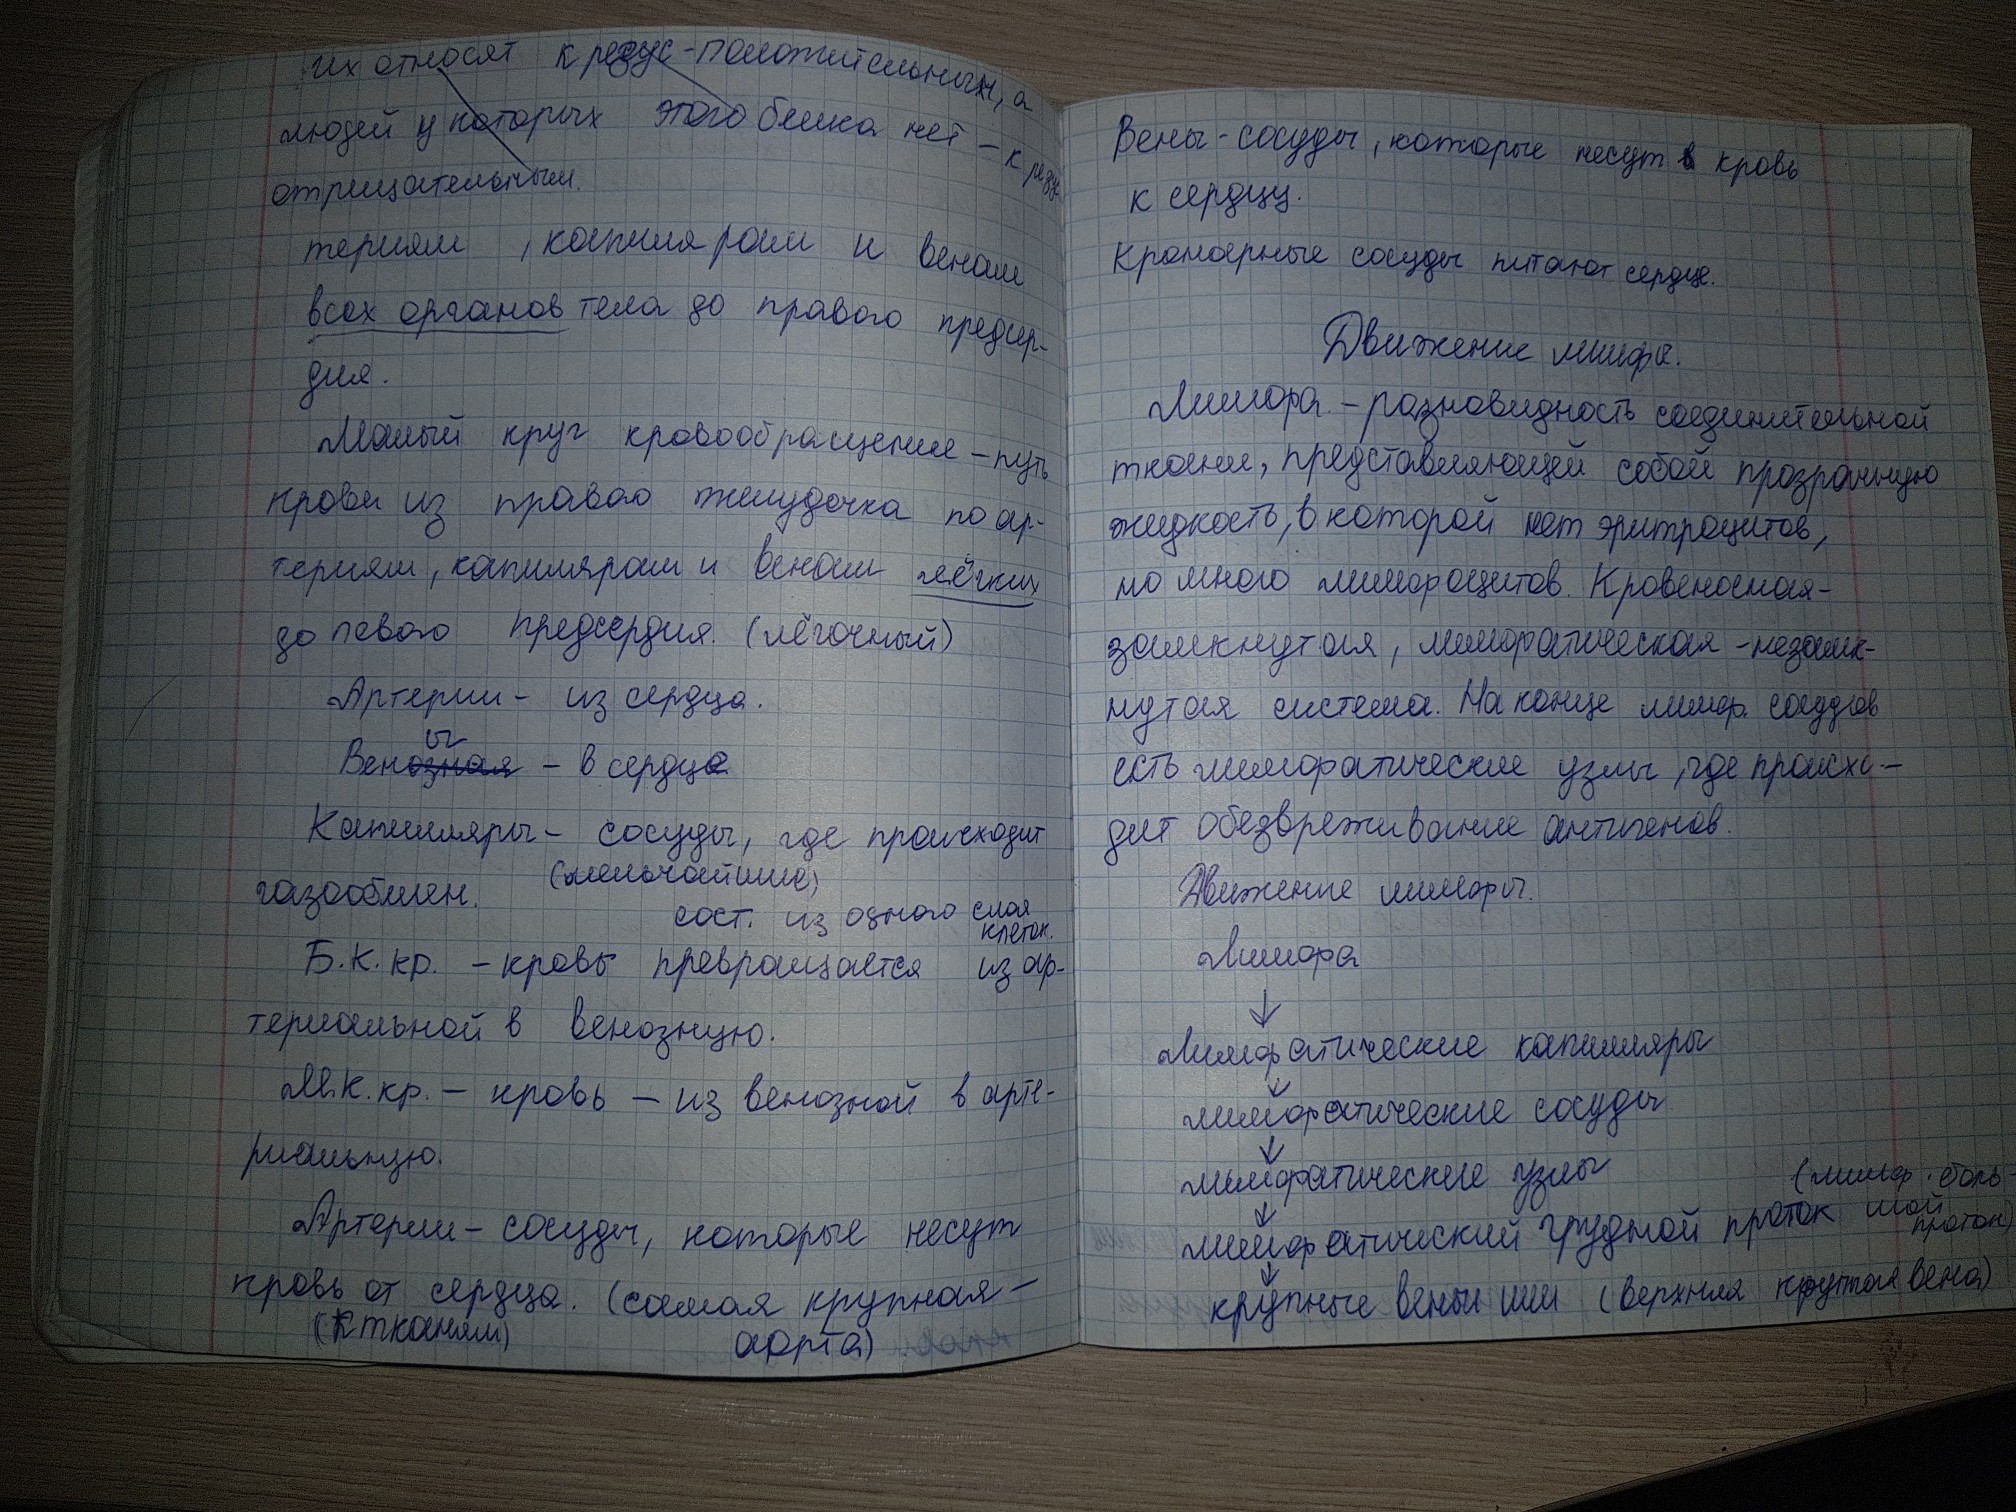 их относят к резус-положительным, а
людей у которых этого белка нет – к резус
отрицательным.
териям, капилярам и венам
всех органов тела до правого предсер-
дия.
Малый круг кровообращение – путь
крови из правого желудочка по ар-
териям, капилярам и венам лёгких
до левого предсердия. (лёгочный)
Артерии – из сердца.
ы
Венозная – в сердце
Капилляры – сосуды, где происходит
газообмен. (мельчайшие)
сост. из одного слоя
клеток.
Б.К.кр. – кровь превращается из ар-
териальной в венозную.
М.К.кр. – кровь – из венозной в арте-
риальную.
Артерии – сосуды, которые несут
кровь от сердца. (самая крупная –
(к тканям) аорта)
Вены – сосуды, которые несут в кровь
к сердцу.
Кронарные сосуды питают сердце.
Движение лимфа.
Лимфа – разновидность соединительной
ткани, представляющей собой прозрачную
жидкость, в которой нет эритроцитов,
но много лимфоцитов. Кровеносная –
замкнутая, лимфатическая – незамк-
нутая система. На конце лимф. сосудов
есть лимфатические узлы, где происхо-
дит обезвреживание антигенов.
Движение лимфы.
Лимфа
↓
Лимфатические капилляры
↓
лимфатические сосуды
↓
лимфатические узлы
↓
лимфатический грудной проток (лимф. боль-
шой
проток)
↓
крупные вены шеи (верхняя полая вена)